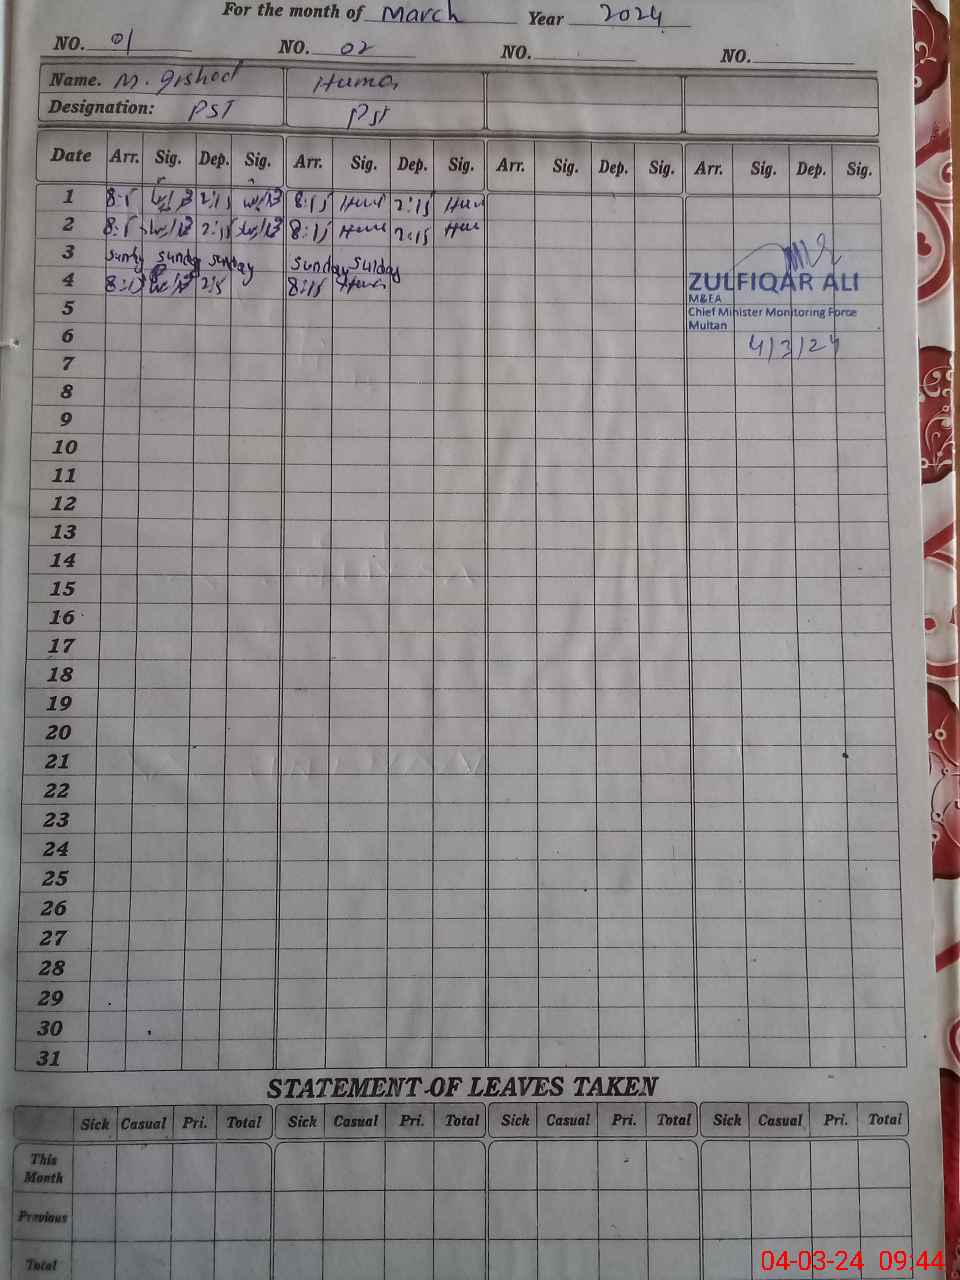 For the month of March Year 2024
NO. 01 NO. 02 NO. NO.
Name. Huma
Designation: PST Pst
Date Arr. Sig. Dep. Sig. Arr. Sig. Dep. Sig. Arr. Sig. Dep. Sig. Arr. Sig. Dep. Sig.
1 2:15 8:15 2:15
2 2:15 8:15 2:15
3 sunday sunday sunday sunday
4 8:15 Huma
ZULFIQAR ALI
M&EA
Chief Minister Monitoring Force
Multan
4/3/24
5
6
7
8
9
10
11
12
13
14
15
16
17
18
19
20
21
22
23
24
25
26
27
28
29
30
31
STATEMENT OF LEAVES TAKEN
Sick Casual Pri. Total Sick Casual Pri. Total Sick Casual Pri. Total Sick Casual Pri. Total
This Month
Previous
Total
04-03-24 09:44